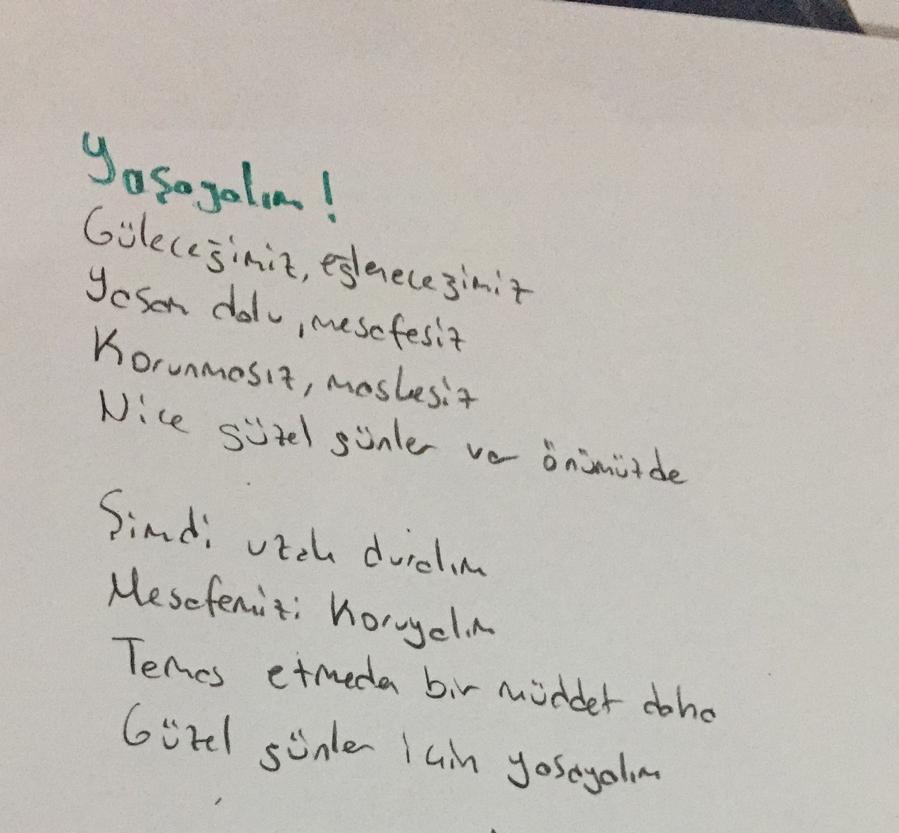 Yaşayalım!
Güleceğimiz, eğleneceğimiz
Yaşam dolu, mesafesiz
Korunmasız, maskesiz
Nice güzel günler var önümüzde
Şimdi uzak duralım
Mesafemizi Koruyalım
Temas etmeden bir müddet daha
Güzel günler için yaşayalım